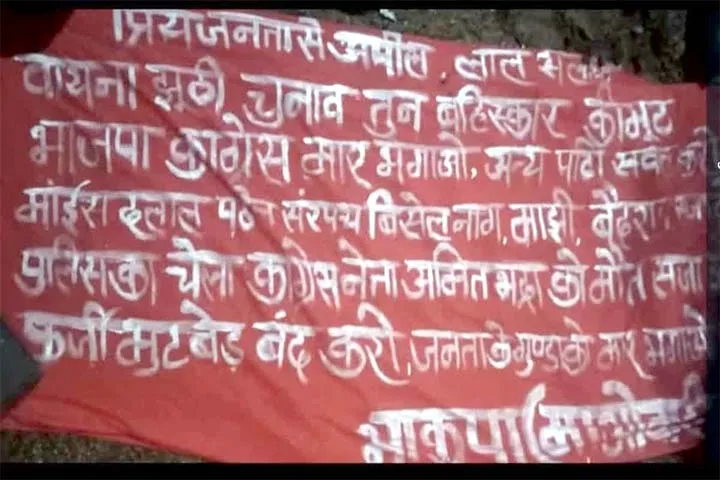 प्रिय जनता से अपील, लाल सलाम
वायना झूठी चुनाव तुन बहिस्कार कीमुट
भाजपा कांग्रेस मार भगाओ, अन्य पार्टी सबक करो
दलाल सरपंच बिसेलनाग, माझी,
पुलिस का चेला कांग्रेस नेता अमित भद्रा को मौत सजा
फर्जी मुटबेड़ बंद करो, जनता के गुण्डा को मार भगाओ
भाकपा (माओवादी